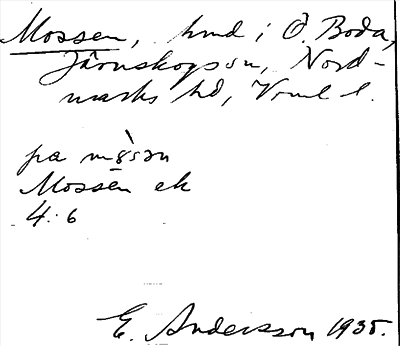 Mossen, hmd i Ö. Boda,
Järnskogs sn, Nord-
marks hd, Vrml l.
pa mɔ̀sən
Mossen ek
4:6
E. Andersson 1935.